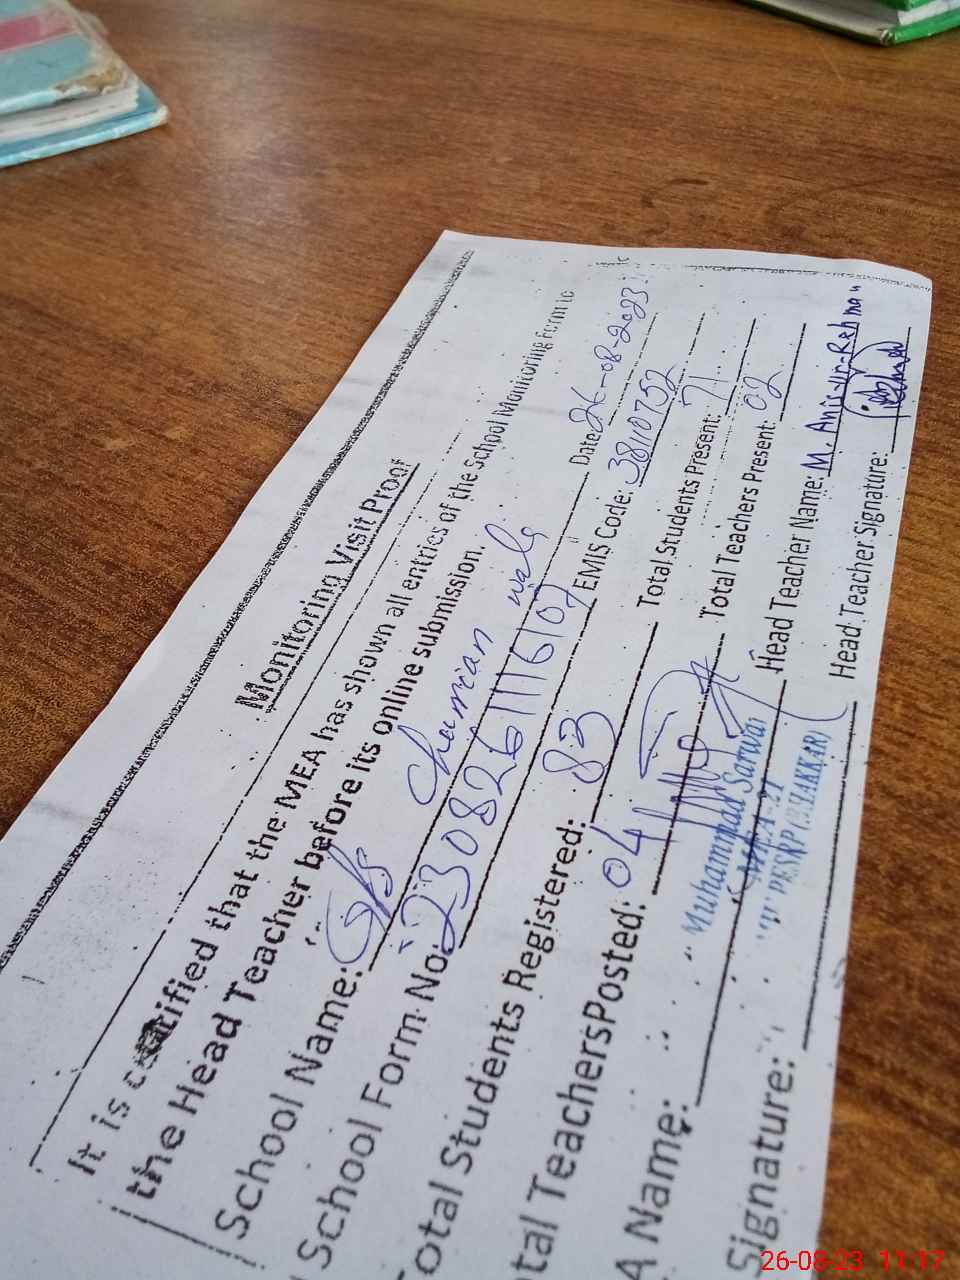 Monitoring Visit Proof
It is certified that the MEA has shown all entries of the School Monitoring Form to
the Head Teacher before its online submission.
School Name: GPS Charian wala Date: 26-08-2023
School Form No: 230826111607 EMIS Code: 38110752
Total Students Registered: 83 Total Students Present: 71
tal TeachersPosted: 04 Total Teachers Present: 02
A Name: Muhammad Sarwar Head Teacher Name: M. Anis-ur-Rehman
MEA-21
Signature: Head Teacher Signature:
26-08-23 11:17